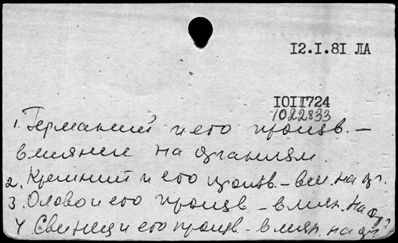 12.I.81 ЛА
1011724
1022833
1. Германий и его произв. –
влияние на организм.
2. Кремний и его произв. – влн. на орг.
3. Олово и его произв – влиян. на орг.
4 Свинец и его произв. – влиян. на орг.